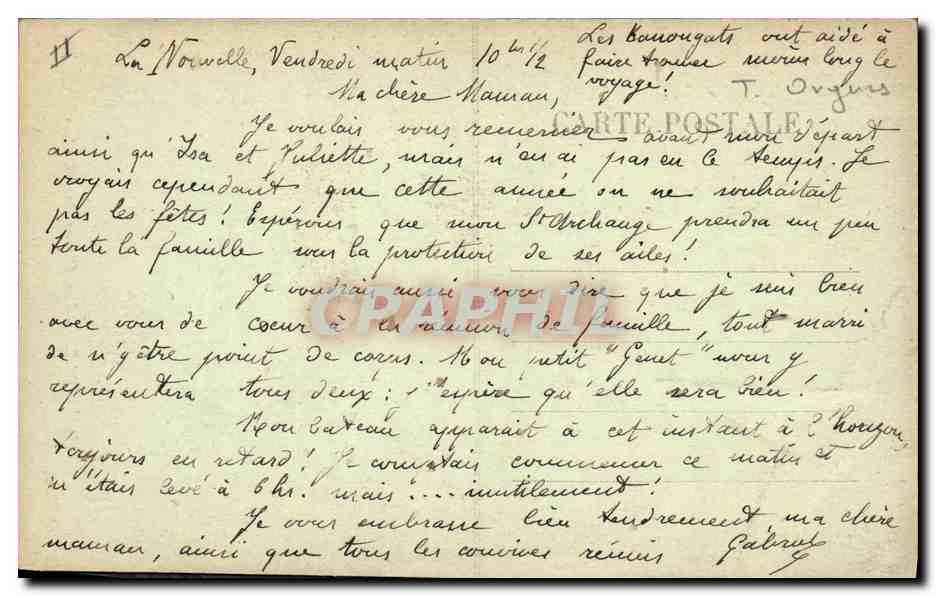 II
La Nouvelle, Vendredi matin 10 hrs 1/2
Les Kanougats ont aidé à
faire trouver moins long le
voyage!
T. Orgers
Ma chère Maman,
CARTE POSTALE
Je voulais vous remercier avant mon départ
ainsi qu'Isa et Juliette, mais n'en ai pas eu le temps. Je
croyais cependant que cette année on ne souhaitait
pas les fêtes! Espérons que mon St Archange prendra un peu
toute la famille sous la protection de ses ailes!
Je voudrais aussi vous dire que je suis bien
avec vous de coeur à la réunion de famille, tout marri
de n'y être point de corps. Mon petit "Genet" nous y
représentera tous deux: j'espère qu'elle sera bien!
Mon bateau apparait à cet instant à l'horizon,
toujours en retard! Je comptais commencer ce matin et
m'étais levé à 6 hr. mais .... inutilement!
Je vous embrasse bien tendrement, ma chère
maman, ainsi que tous les convives réunis Gabriel
CPAPHIL